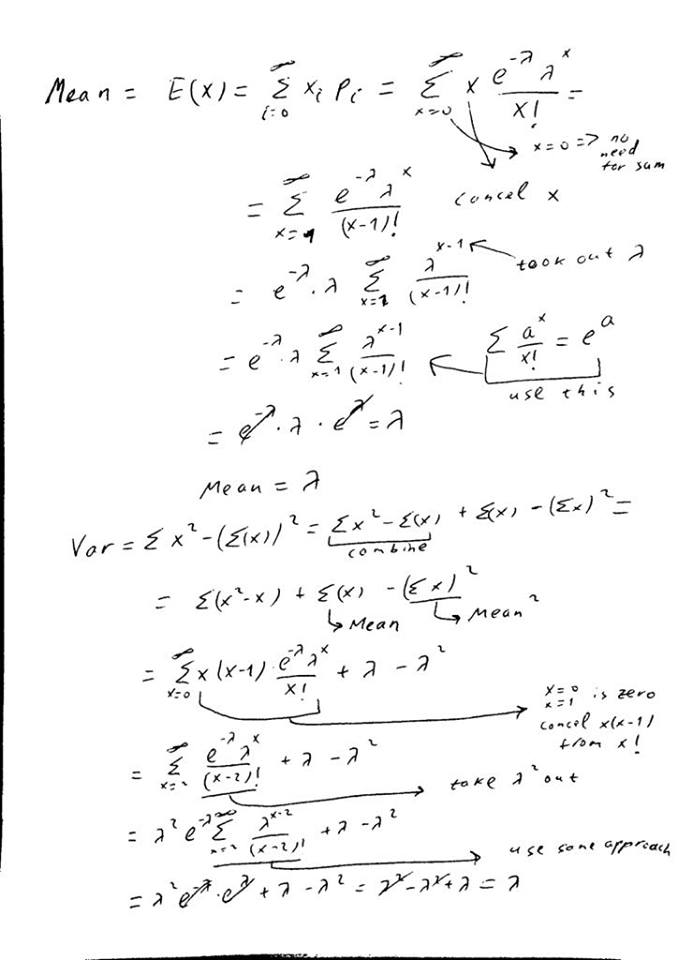 Mean = E(x) = ∞Σi=0 xi Pi = ∞Σx=0 x e^-λ λ^x / x! =
x=0 => no need for sum
= ∞Σx=1 e^-λ λ^x / (x-1)! cancel x
= e^-λ · λ ∞Σx=1 λ^x-1 / (x-1)! took out λ
= e^-λ · λ ∞Σx=1 λ^x-1 / (x-1)! Σ a^x / x! = e^a
use this
= e^-λ · λ · e^λ = λ
Mean = λ
Var = Σ x² - (Σ(x))² = Σx² - Σ(x) + Σ(x) - (Σx)² =
combine
= Σ(x²-x) + Σ(x) - (Σx)²
Mean Mean²
= ∞Σx=0 x(x-1) · e^-λ λ^x / x! + λ - λ²
x=0
x=1 is zero
cancel x(x-1)
from x!
= ∞Σx=2 e^-λ λ^x / (x-2)! + λ - λ²
take λ² out
= λ² e^-λ ∞Σx=2 λ^x-2 / (x-2)! + λ - λ²
use same approach
= λ² e^-λ · e^λ + λ - λ² = λ² - λ² + λ = λ